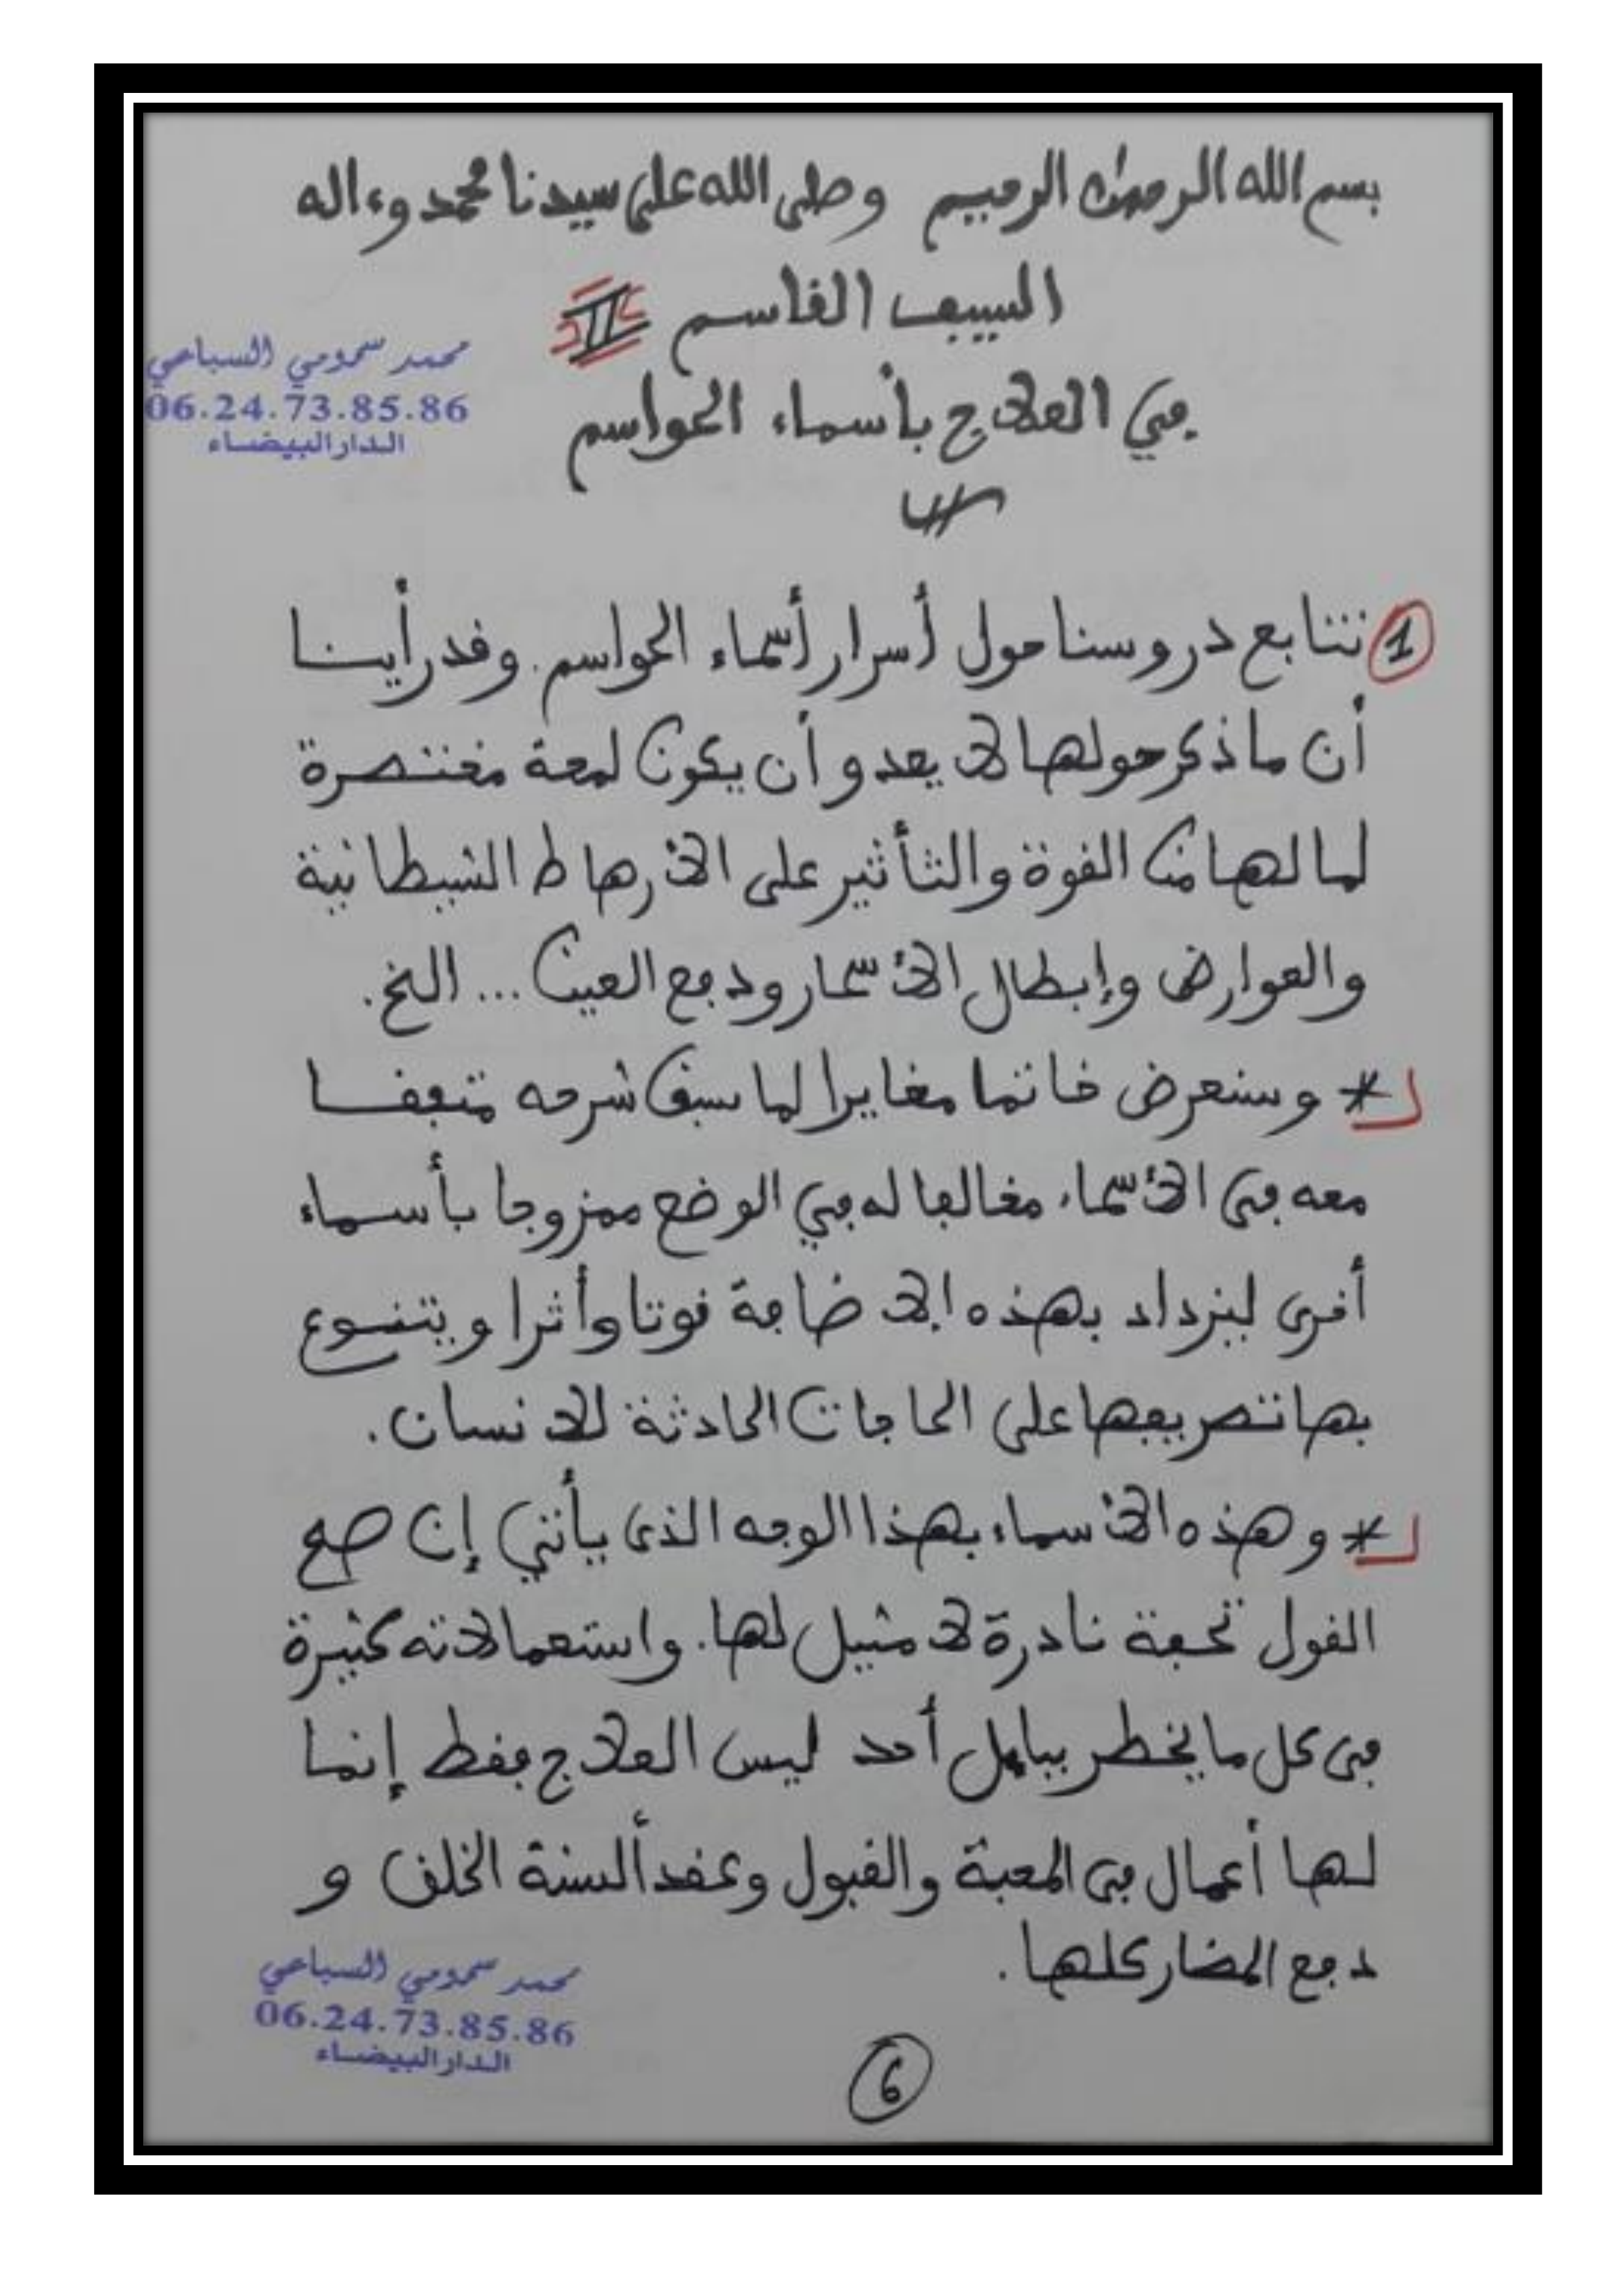 بسم الله الرحمن الرحيم وصلى الله على سيدنا محمد وءاله
السيف القاسم II
في العلاج بأسماء الحواسم
محمد سمومي السباعي
06.24.73.85.86
الدار البيضاء
1 نتابع دروسنا حول أسرار أسماء الحواسم. وقد رأينا
أن ما ذكر حولها لا يعدو أن يكون لمعة مختصرة
لما لها من القوة والتأثير على الأرهاط الشيطانية
والعوارض وإبطال الأسحار ودفع العين ... الخ.
* وسنعرض خاتما مغايرا لما سبق شرحه متفقا
معه في الأسماء مخالفا له في الوضع ممزوجا بأسماء
أخرى ليزداد بهذه الإضافة قوتا وأثرا ويتنوع
بها تصريفها على الحاجات الحادثة للانسان.
* وهذه الأسماء بهذا الوجه الذي يأتي إن صح
القول تحفة نادرة لا مثيل لها. واستعمالاته كثيرة
في كل ما يخطر ببال أحد ليس العلاج فقط إنما
لها أعمال في المحبة والقبول وعقد ألسنة الخلق و
دفع المضار كلها.
محمد سمومي السباعي
06.24.73.85.86
الدار البيضاء
6